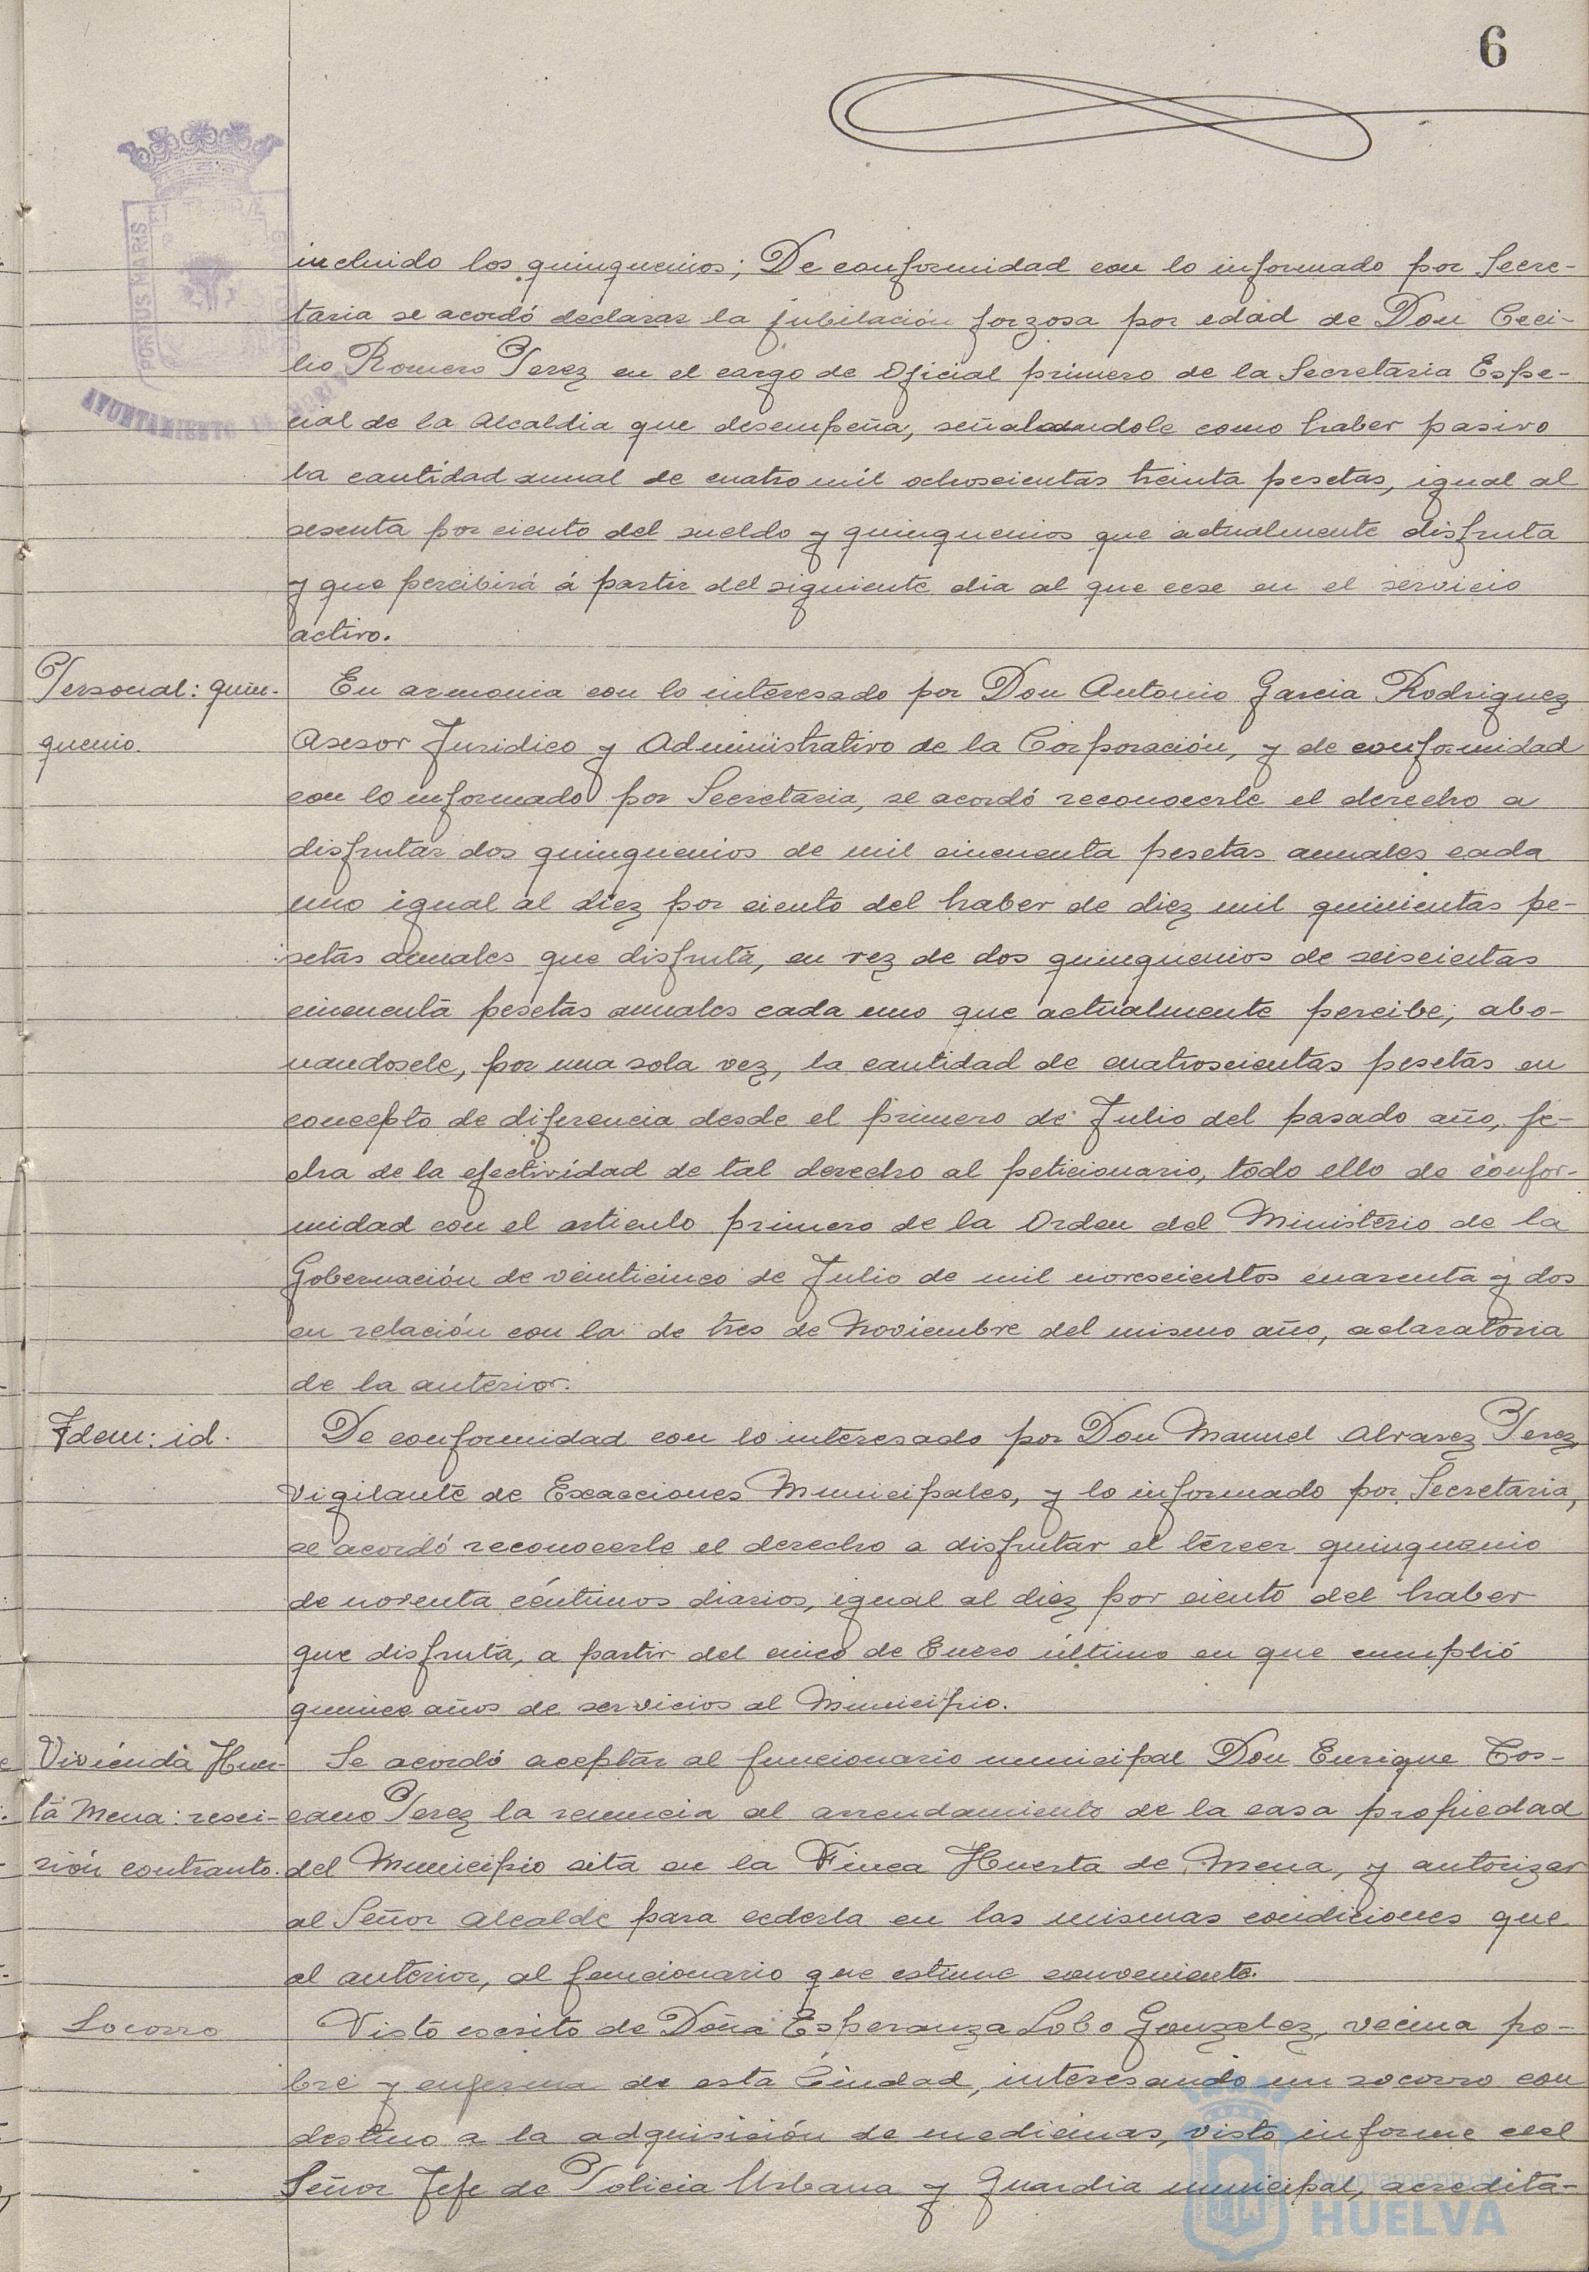 6
PORTUS MARIS
AYUNTAMIENTO DE HUELVA
incluido los quinquenios; De conformidad con lo informado por Secre-
taria se acordó declarar la jubilación forzosa por edad de Don Ceci-
lio Romero Perez en el cargo de Oficial primero de la Secretaria Espe-
cial de la Alcaldia que desempeña, señalandole como haber pasivo
la cantidad anual de cuatro mil ochoscientas treinta pesetas, igual al
sesenta por ciento del sueldo y quinquenios que actualmente disfruta
y que percibirá á partir del siguiente dia al que cese en el servicio
activo.
Personal: quin-
quenio.
En armonia con lo interesado por Don Antonio Garcia Rodriguez
Asesor Juridico y Administrativo de la Corporación, y de conformidad
con lo informado por Secretaria, se acordó reconocerle el derecho a
disfrutar dos quinquenios de mil cincuenta pesetas anuales cada
uno igual al diez por ciento del haber de diez mil quinientas pe-
setas anuales que disfruta, en vez de dos quinquenios de seiscientas
cincuenta pesetas anuales cada uno que actualmente percibe; abo-
nandosele, por una sola vez, la cantidad de cuatroscientas pesetas en
concepto de diferencia desde el primero de Julio del pasado año, fe-
cha de la efectividad de tal derecho al peticionario, todo ello de confor-
midad con el articulo primero de la Orden del Ministerio de la
Gobernación de veinticinco de Julio de mil novescientos cuarenta y dos
en relación con la de tres de Noviembre del mismo año, aclaratoria
de la anterior.
Idem: id.
De conformidad con lo interesado por Don Manuel Alvarez Perez
Vigilante de Exacciones Municipales, y lo informado por Secretaria,
se acordó reconocerle el derecho a disfrutar el tercer quinquenio
de noventa céntimos diarios, igual al diez por ciento del haber
que disfruta, a partir del cinco de Enero último en que cumplió
quince años de servicios al Municipio.
Vivienda Huer-
ta Mena: resci-
sión contranto.
Se acordó aceptar al funcionario municipal Don Enrique Tos-
cano Perez la renuncia al arrendamiento de la casa propiedad
del Municipio sita en la Finca Huerta de Mena, y autorizar
al Señor Alcalde para cederla en las mismas condiciones que
al anterior, al funcionario que estime conveniente.
Socorro
Visto escrito de Doña Esperanza Lobo Gonzalez, vecina po-
bre y enferma de esta Ciudad, interesando un socorro con
destino a la adquisición de medicinas, visto informe del
Señor Jefe de Policia Urbana y Guardia municipal, acredita-
Ayuntamiento de
HUELVA